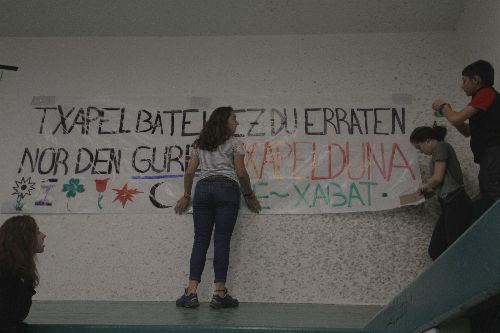 TXAPEL BATEK EZ DU ERRATEN
NOR DEN GURE TXAPELDUNA
~ XABAT ·